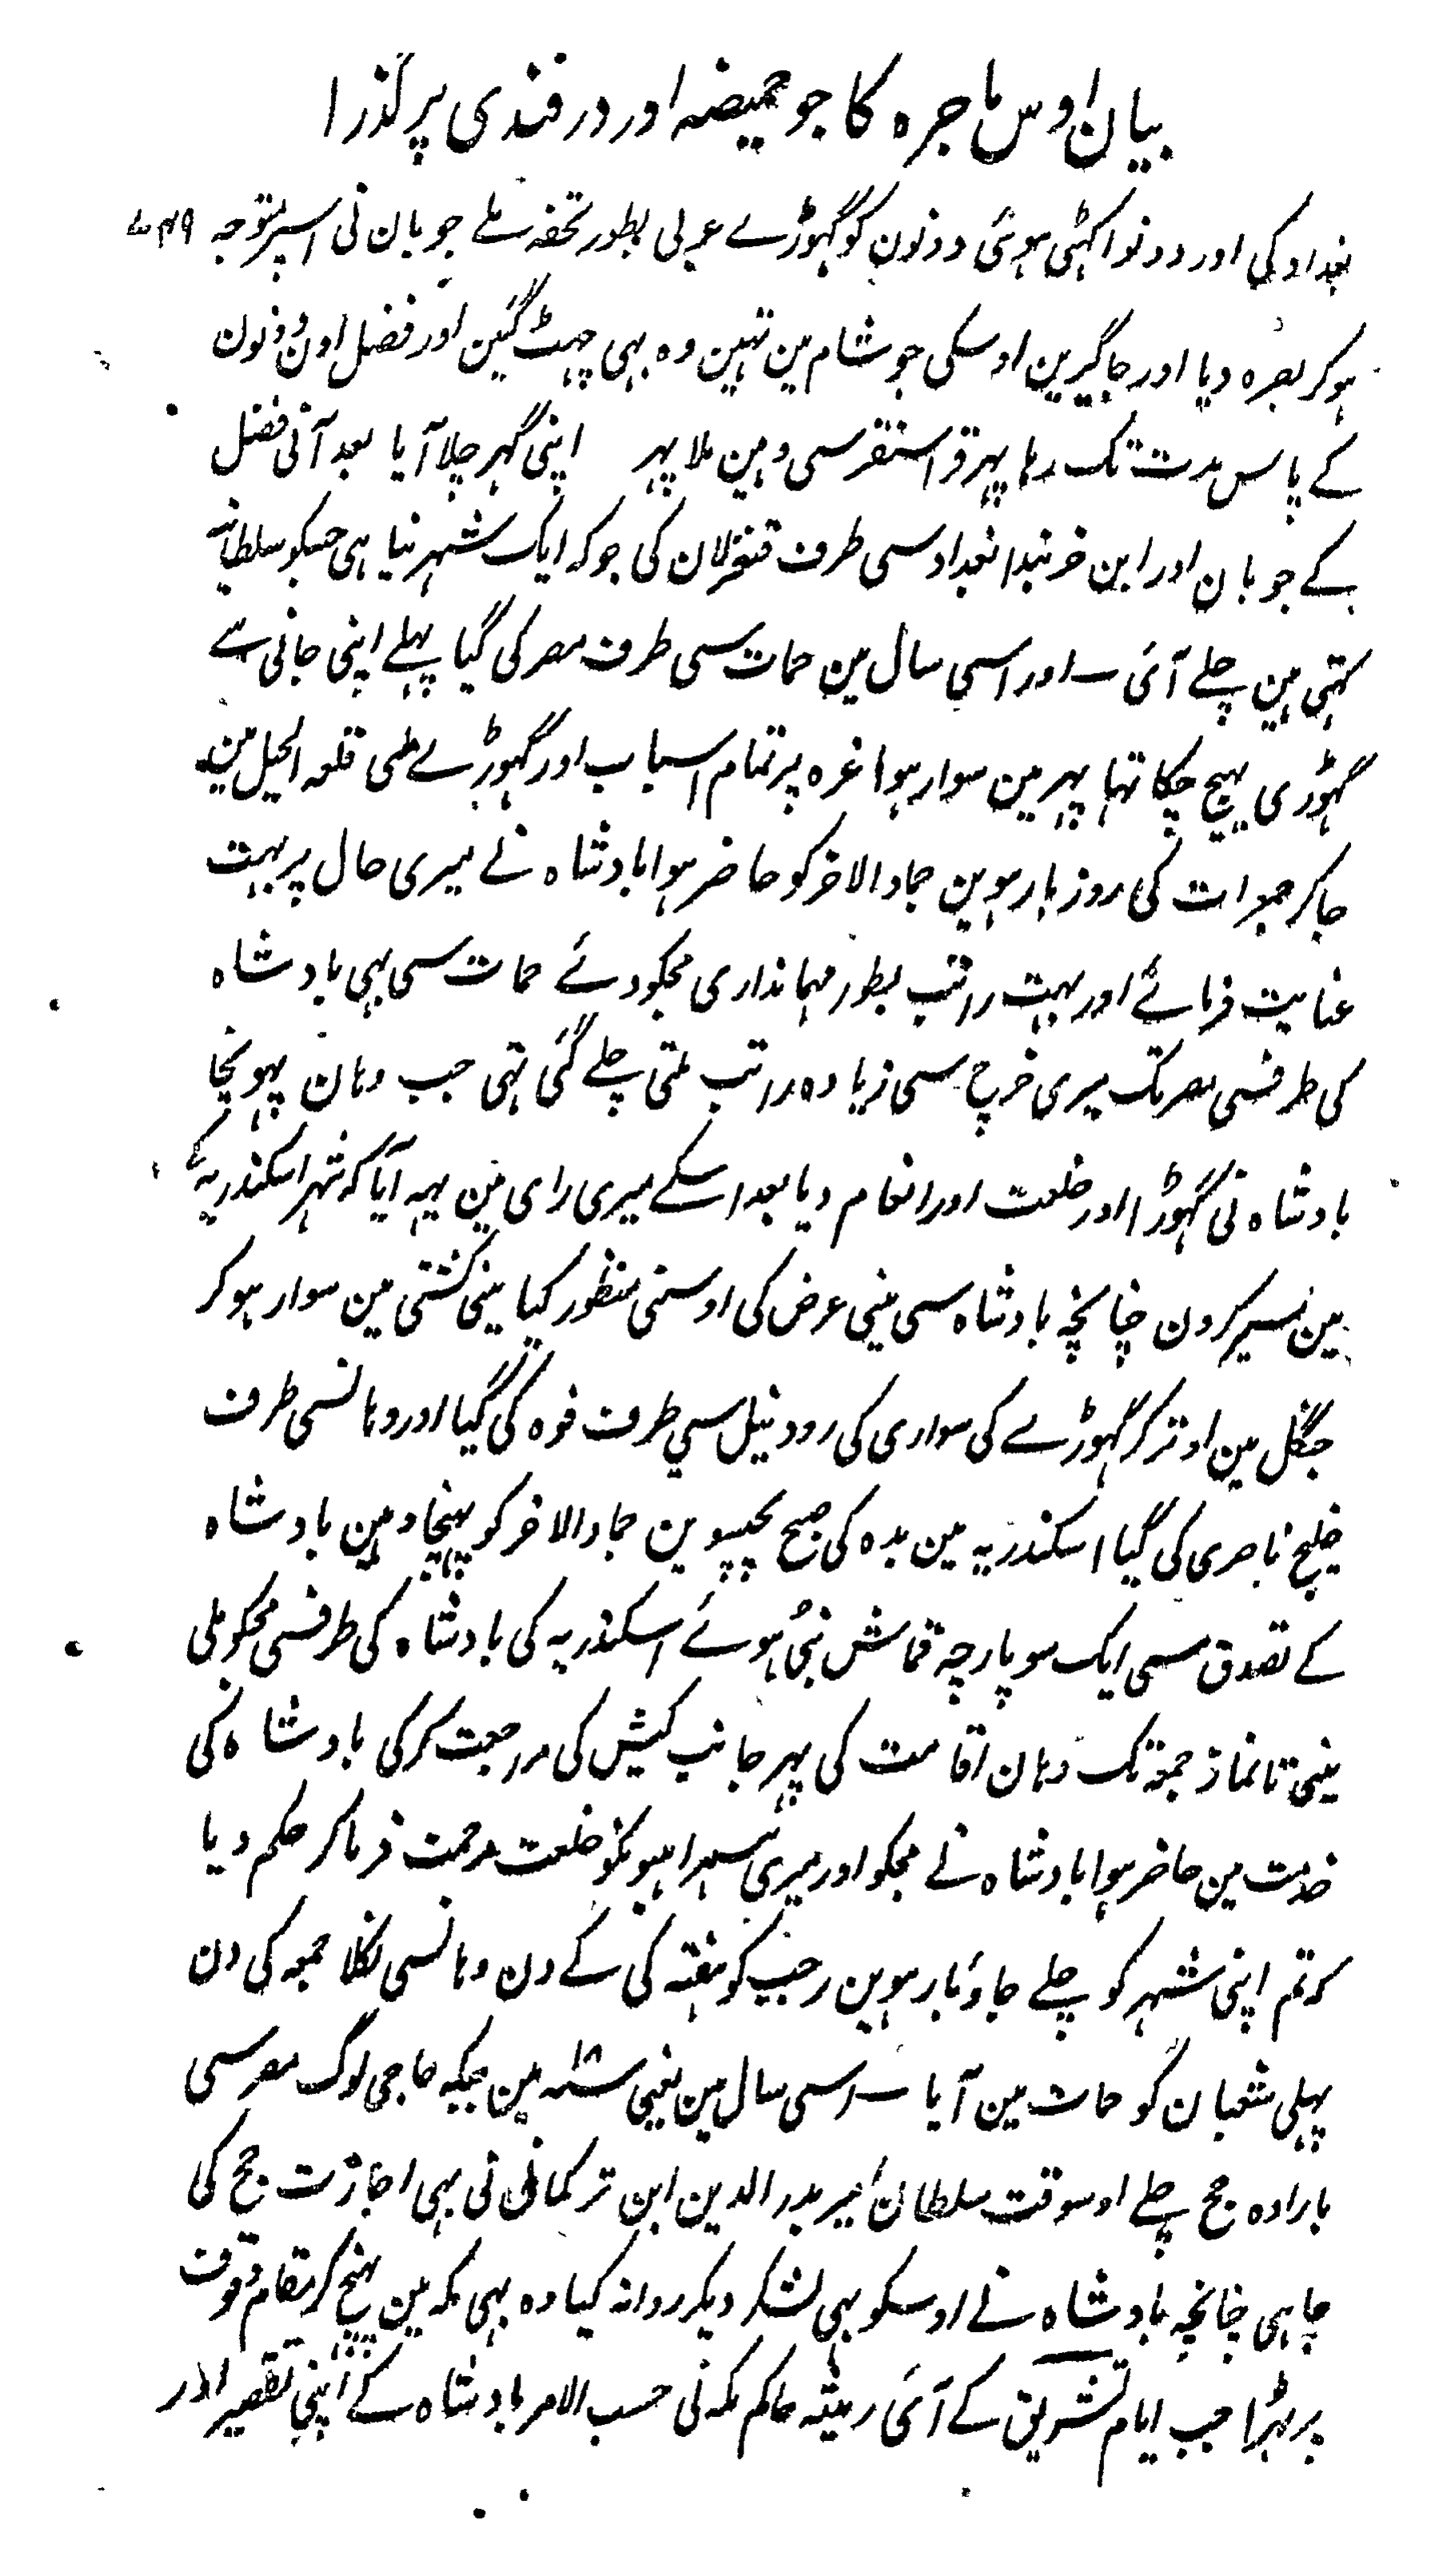 بیان اوس ماجرہ کا جو حمیضہ اور درفندی پر گذرا
بغداد کی اور دونو اکہٹی ہوئی دونون کو گہوڑے عربی بطور تحفہ ملے جوبان نی اسپر متوجہ
ہوکر بصرہ دیا اور جاگیرین اوسکی جو شام مین تہین وہ بہی چہٹ گئین اور فضل اون دونون
کے پاس مدت تک رہا پہر قراسنقر سی وہین ملا پہر اپنی گہر چلا آیا بعد آنی فضل
کے جوبان اور ابن خربندا بغداد سی طرف قنغرلان کی جو کہ ایک شہر نیا ہی جسکو سلطانیہ
کہتی ہین چلے آئی ــ اور اسی سال مین حمات سی طرف مصر کی گیا پہلے اپنی جانی سے
گہوڑی بہیج چکا تہا پہر مین سوار ہوا غزہ پر تمام اسباب اور گہوڑے ملی قلعہ الجبل مین
جاکر جمعرات کی روز بارہوین جماد الاخر کو حاضر ہوا بادشاہ نے میری حال پر بہت
عنایت فرمائے اور بہت راتب بطور مہمانداری مجکو دئے حمات سی بہی بادشاہ
کی طرفسی مصر تک میری خرچ سی زیادہ راتب ملتی چلے گئی تہی جب وہان پہونچا
بادشاہ نی گہوڑا اور خلعت اور انعام دیا بعد اسکے میری رای مین یہہ آیا کہ شہر اسکندریہ کے
مین سیر کرون چنانچہ بادشاہ سی مینی عرض کی اوسنی منظور کیا مینی کشتی مین سوار ہوکر
جنگل مین اوترکر گہوڑے کی سواری کی رود نیل سی طرف فوہ کی گیا اور وہانسی طرف
خلیج ناصری کی گیا اسکندریہ مین بدہ کی صبح پچیسوین جماد الاخر کو پہنچا وہین بادشاہ
کے تصدق سی ایک سو پارچہ قماش بنی ہوئے اسکندریہ کی بادشاہ کی طرفسی مجکو ملی
مینی تا نماز جمعہ تک وہان اقامت کی پہر جانب کیش کی مراجعت کرکی بادشاہ کی
خدمت مین حاضر ہوا بادشاہ نے مجکو اور میری ہمراہیونکو خلعت مرحمت فرماکر حکم دیا
کہ تم اپنی شہر کو چلے جاؤ بارہوین رجب کو ہفتہ کی کے دن وہانسی نکلا جمعہ کی دن
پہلی شعبان کو حمات مین آیا ــ اسی سال مین یعنی سنہ مین جبکہ حاجی لوگ مصر سی
بارادہ حج چلے اوسوقت سلطان امیر بدر الدین ابن ترکمانی نی بہی اجازت حج کی
چاہی چنانچہ بادشاہ نے اوسکو بہی لشکر دیکر روانہ کیا وہ بہی مکہ مین پہنچ کر مقام وقوف
پر ٹہرا جب ایام تشریق کے آئی رمیثہ حاکم مکہ نی حسب الامر بادشاہ کے اپنی تقصیر اور